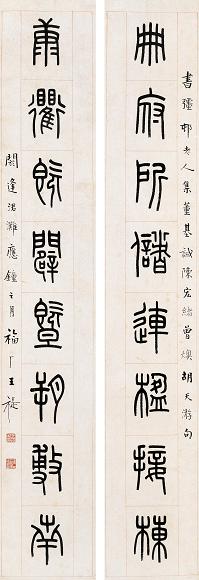 書彊邨老人集董基誠陳宏緒曾燠胡天游句
典府所儲連楹接棟
康衢既闢暨朔敷南
閼逢涒灘應鍾之月福厂王禔